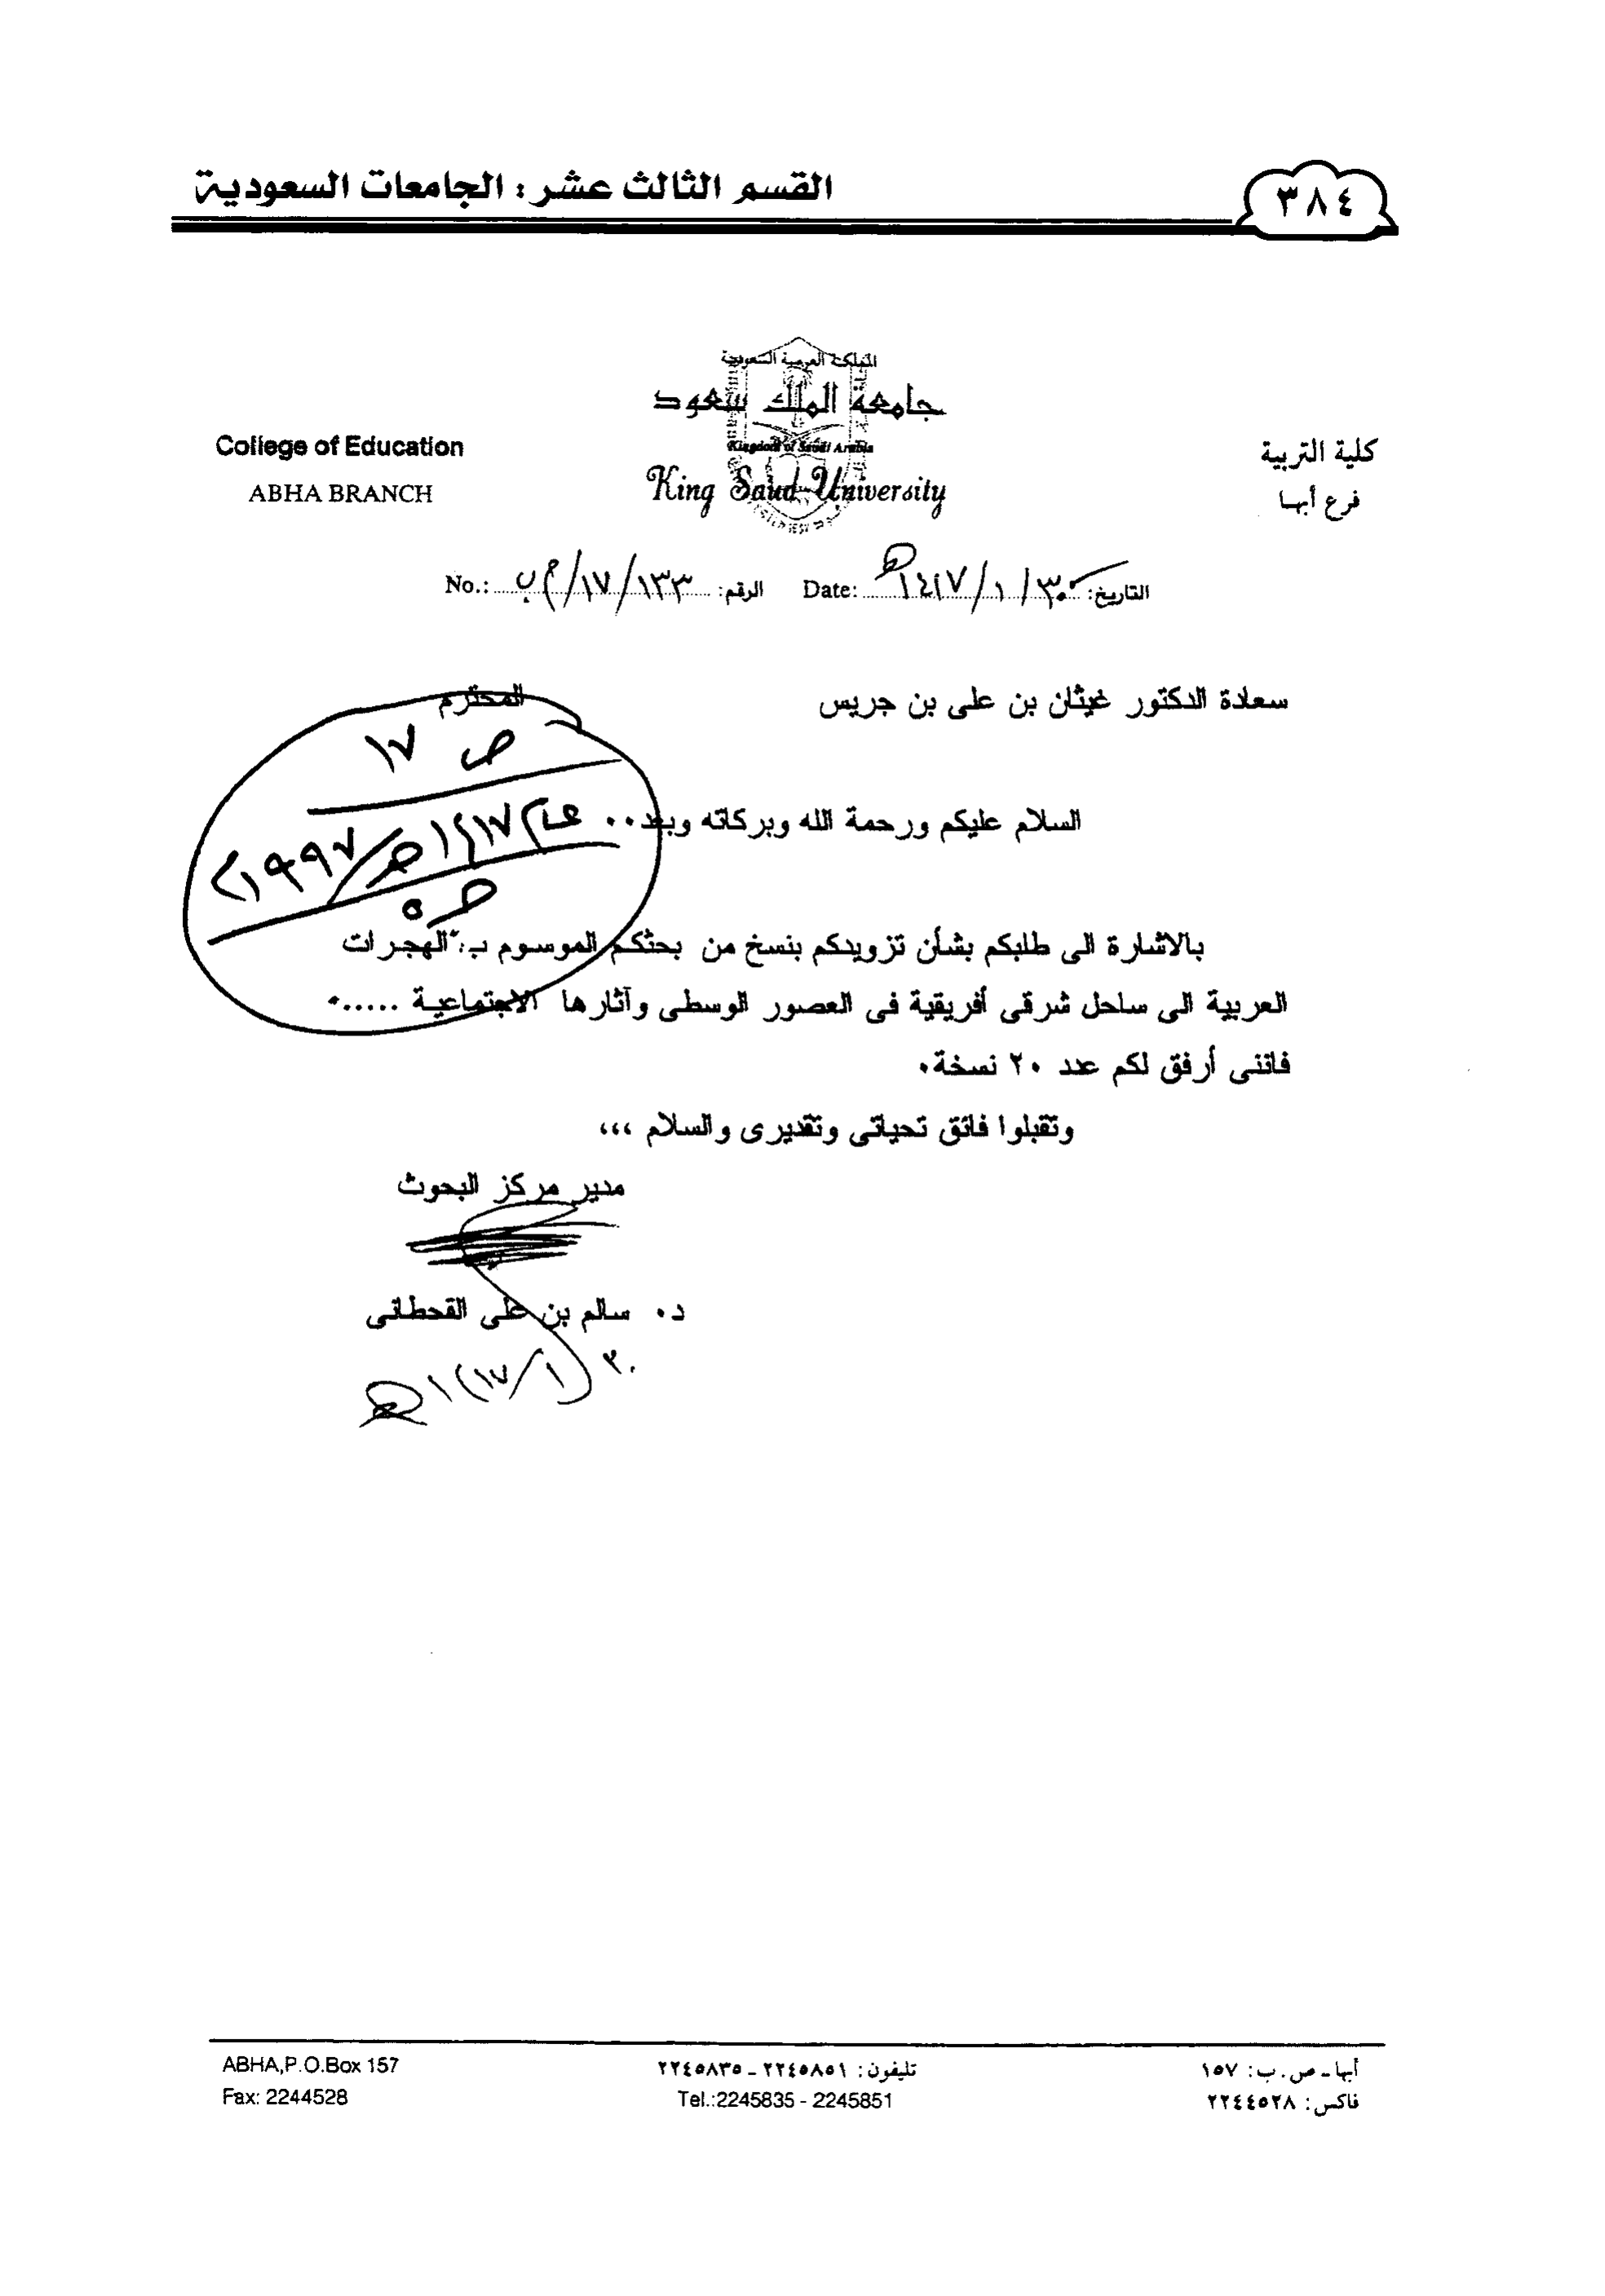 ٣٨٤
القسم الثالث عشر: الجامعات السعودية
المملكة العربية السعودية
جامعة الملك سعود
Kingdom of Saudi Arabia
King Saud University
كلية التربية
فرع أبها
College of Education
ABHA BRANCH
التاريخ: ٣٠/١/١٤١٧هـ Date:
الرقم: ١٣٣/١٧/م ب No.:
سعادة الدكتور غيثان بن على بن جريس المحترم
ص ١٧
السلام عليكم ورحمة الله وبركاته وبعد..
عام ١٤١٧هـ/١٩٩٧م
بالاشارة الى طلبكم بشأن تزويدكم بنسخ من بحثكم الموسوم بـ:"الهجرات
العربية الى ساحل شرقى أفريقية فى العصور الوسطى وآثارها الاجتماعية .....
فاننى أرفق لكم عدد ٢٠ نسخة.
وتقبلوا فائق تحياتى وتقديرى والسلام ،،،
مدير مركز البحوث
د. سالم بن على القحطانى
٣٠/١/١٤١٧هـ
أبها ـ ص.ب: ١٥٧
فاكس: ٢٢٤٤٥٢٨
تليفون: ٢٢٤٥٨٥١ ـ ٢٢٤٥٨٣٥
Tel.:2245835 - 2245851
ABHA,P.O.Box 157
Fax: 2244528